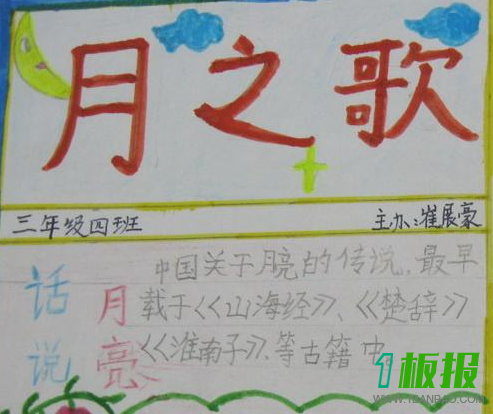 月之歌
三年级四班 主办:崔展豪
话说
月亮
中国关于月亮的传说,最早
载于《山海经》、《楚辞》
《淮南子》、等古籍中
1板报
WWW.1BANBAO.COM